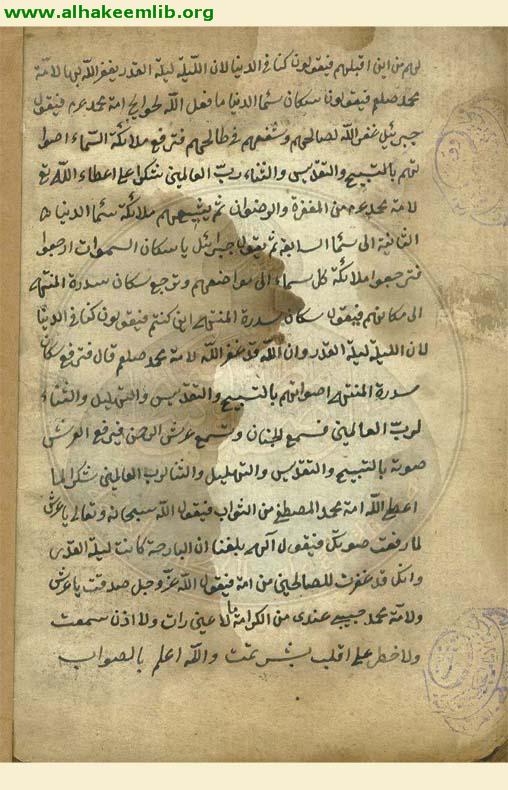 www.alhakeemlib.org
لهم من اين اقبلتم فيقولون كنا في الدنيا لان الليلة ليلة القدر يغفر الله بها لامة
محمد صلعم فيقولون سكان سما الدنيا ما فعل الله لحوايج امة محمد عم فيقول
جبرئيل غفر الله لصالحيهم وشفعهم في طالحيهم فترفع ملائكة السماء اصوا
تهم بالتسبيح والتقديس والثناء لرب العالمين شكرا على اعطاء الله تع
لامة محمد عم من المغفرة والرضوان ثم يشيعهم ملائكة سما الدنيا
الثانية الى سما السابعة ثم يقول جبرئيل يا سكان السموات ارجعوا
فترجعوا ملائكة كل سماء الى مواضعهم وترجع سكان سدرة المنتهى
الى مكانهم فيقول سكان سدرة المنتهى اين كنتم فيقولون كنا في الدنيا
لان الليلة ليلة القدر وان الله قد غفر الله لامة محمد صلعم قال فترفع سكان
سدرة المنتهى اصواتهم بالتسبيح والتقديس والتهليل والثناء
لرب العالمين فتسمع الجنان وتسمع عرش الرحمن فيرفع العرش
صوته بالتسبيح والتقديس والتهليل والثنا لرب العالمين شكرا لما
اعطى الله امة محمد المصطفى من الثواب فيقول الله سبحانه وتعالى يا عرش
لما رفعت صوتك فيقول آلهى بلغنا ان البارحة كانت ليلة القدر
وانك قد غفرت للصالحين من امة فيقول الله عز وجل صدقت يا عرش
ولامة محمد حبيبي عندى من الكرامة ما لا عين رات ولا اذن سمعت
ولا خطر على قلب بشر تمت والله اعلم بالصواب